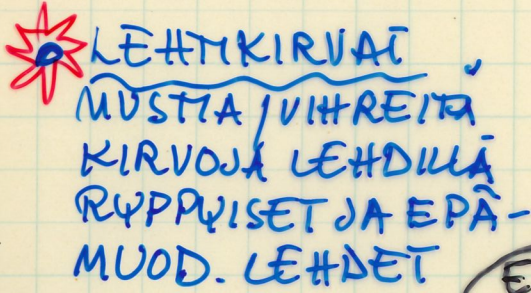 LEHTIKIRVAT
MUSTIA / VIHREITÄ
KIRVOJA LEHDILLÄ
RYPPYISET JA EPÄ-
MUOD. LEHDET